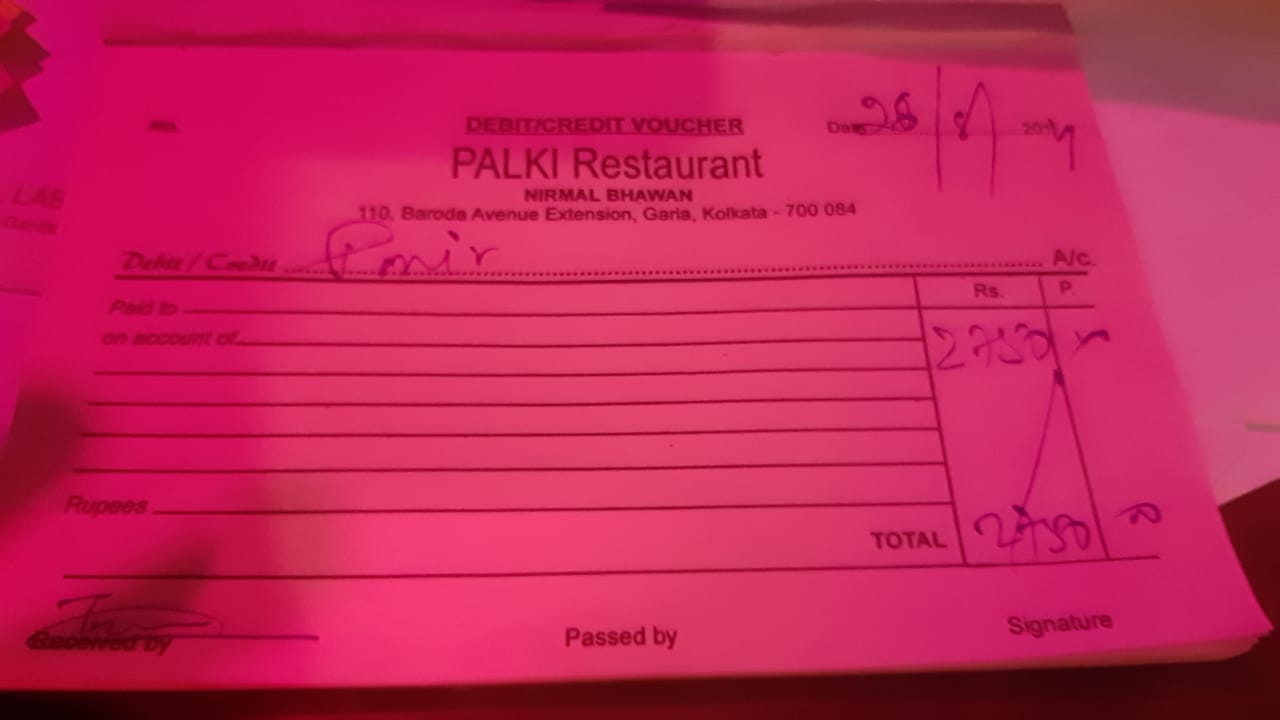 LAB
No.
DEBIT/CREDIT VOUCHER
Date 28/8/2019
PALKI Restaurant
NIRMAL BHAWAN
110, Baroda Avenue Extension, Garia, Kolkata - 700 084
Debit / Credit Ponir A/c.
Rs. P.
Paid to
on account of 2750
Rupees
TOTAL 2750 00
Received by
Passed by
Signature